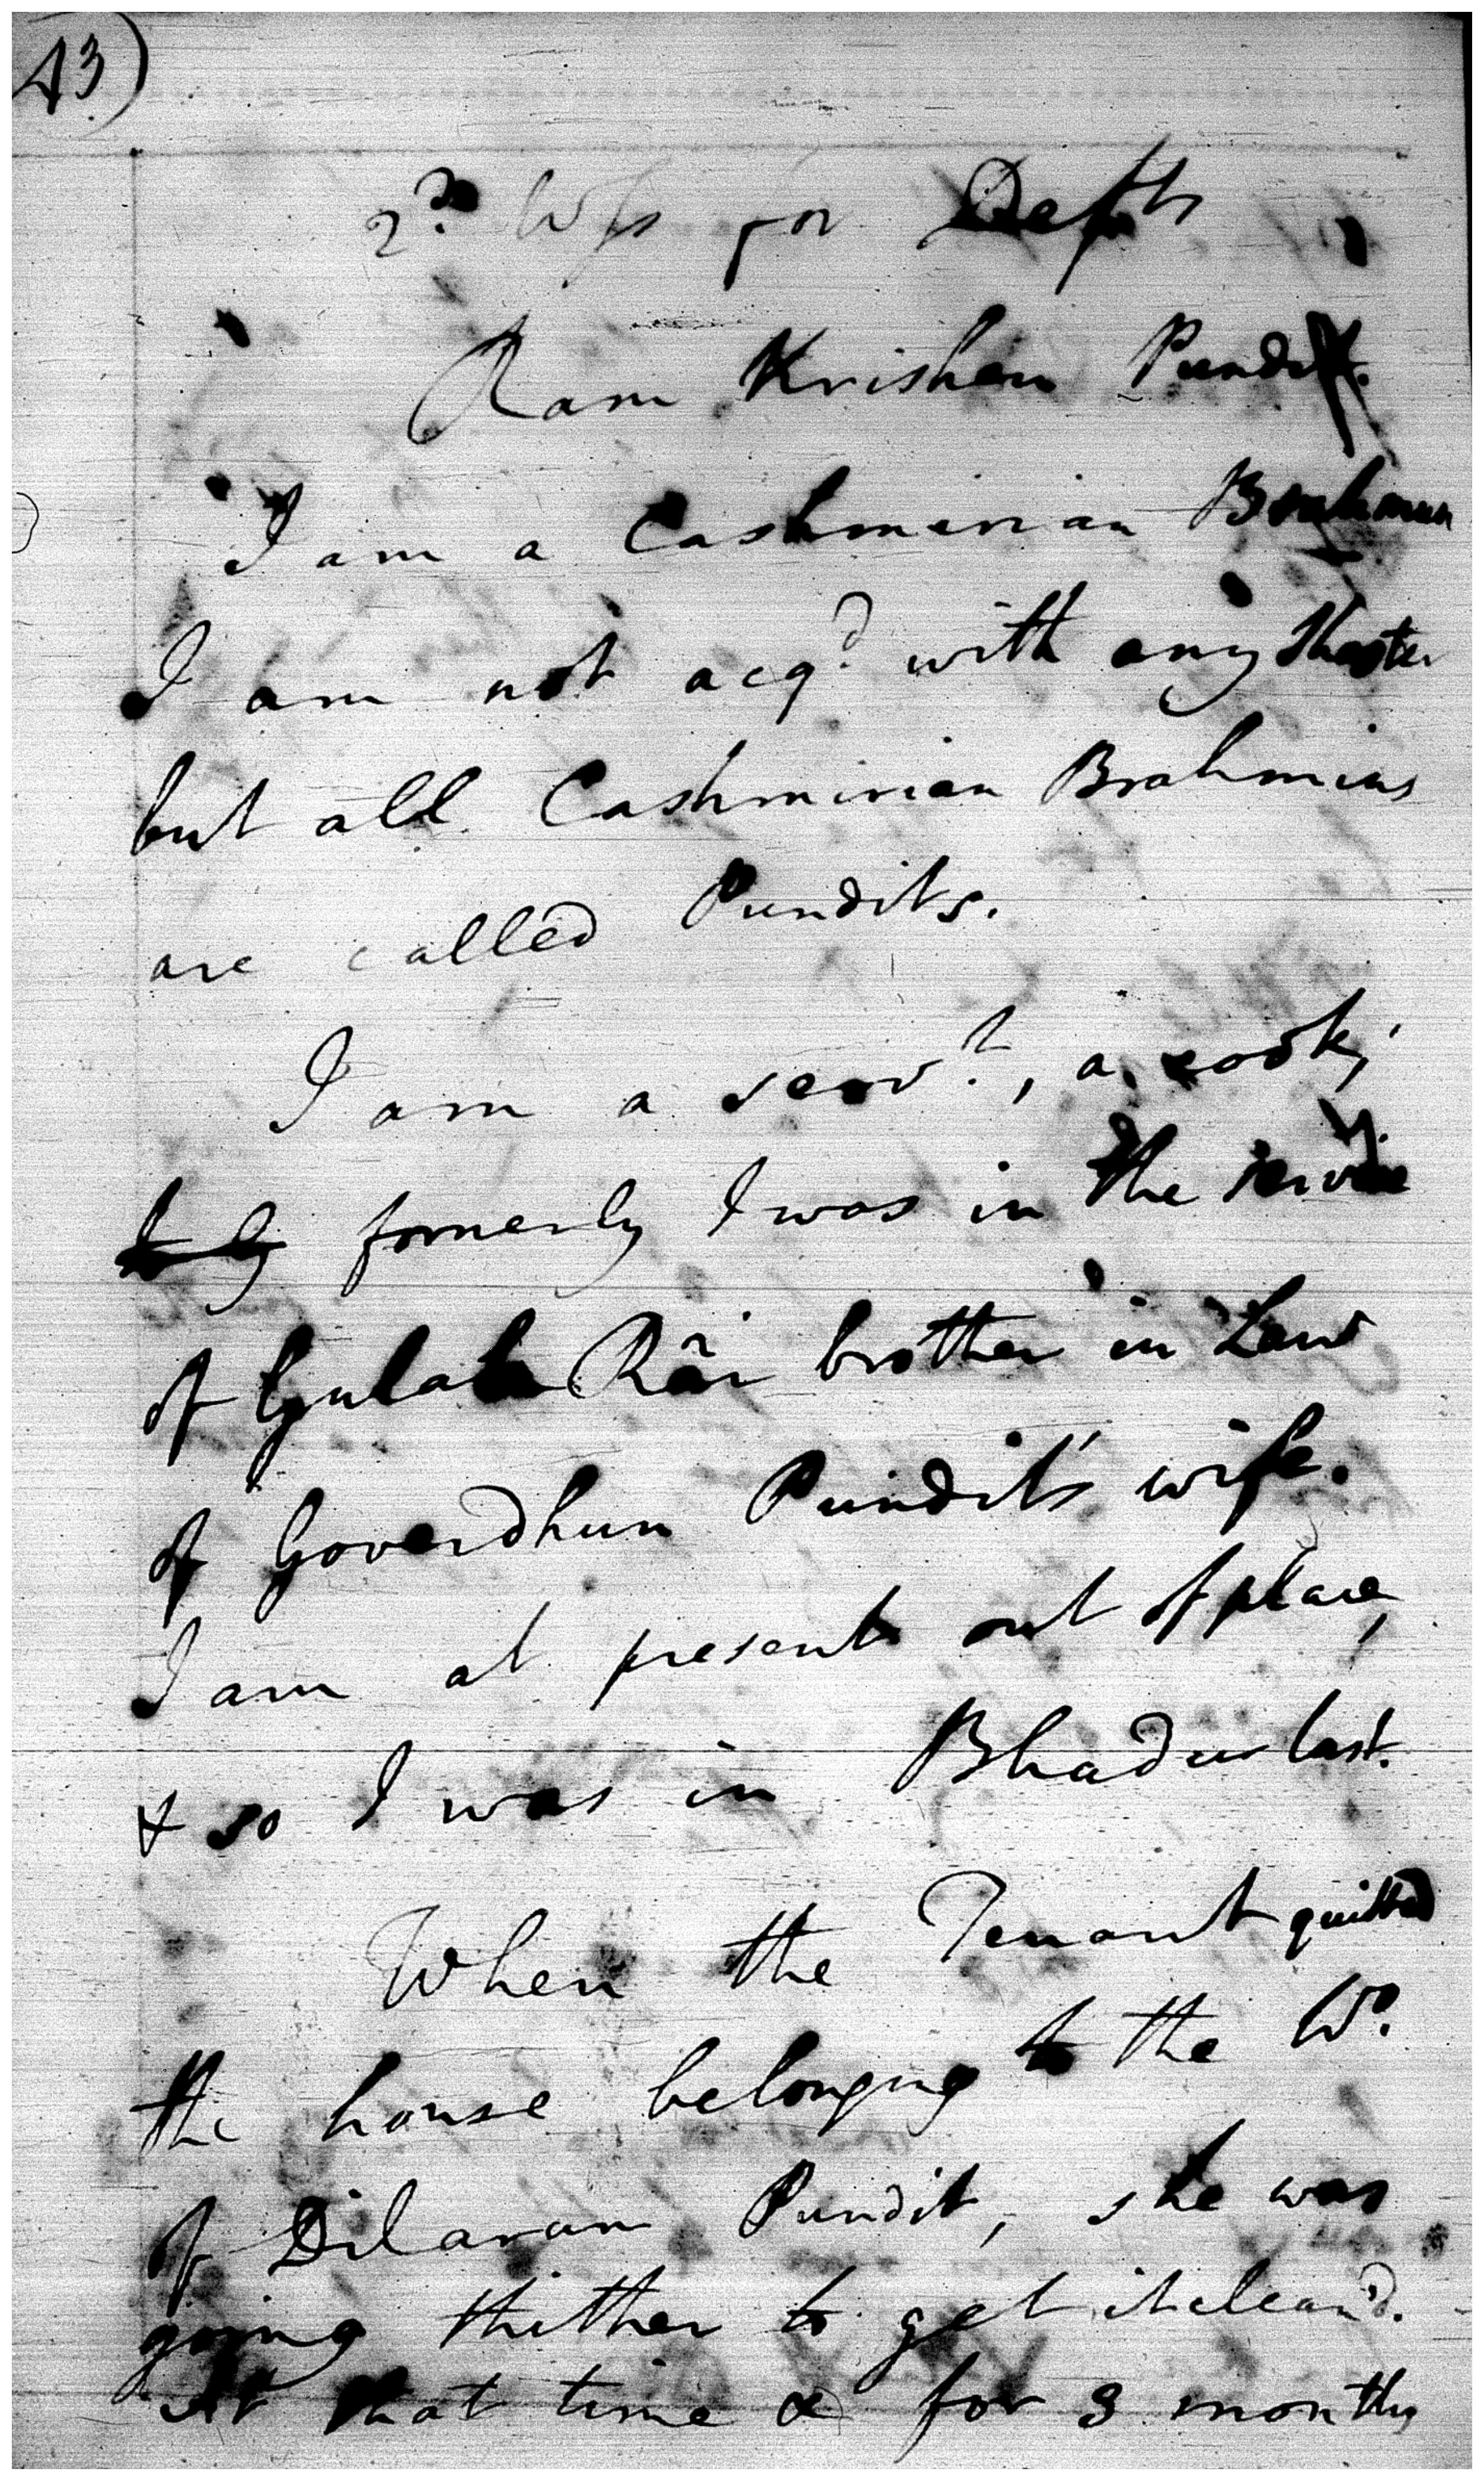 43)
2d Wss for Defts
Ram Krishen Pundit.
I am a Cashmerian Brahmun
I am not acqd with any Shaster
but all Cashmirian Brahmins
are called Pundits.
I am a servt, a cook,
formerly I was in the service
of Gulab Rãi brother in Law
of Goverdhun Pundit's wife.
I am at present out of place,
& so I was in Bhadur last.
When the Tenant quitted
the house belonging to the Wo.
of Dilaram Pundit, she was
going thither to get it clean'd.
At that time & for 3 months